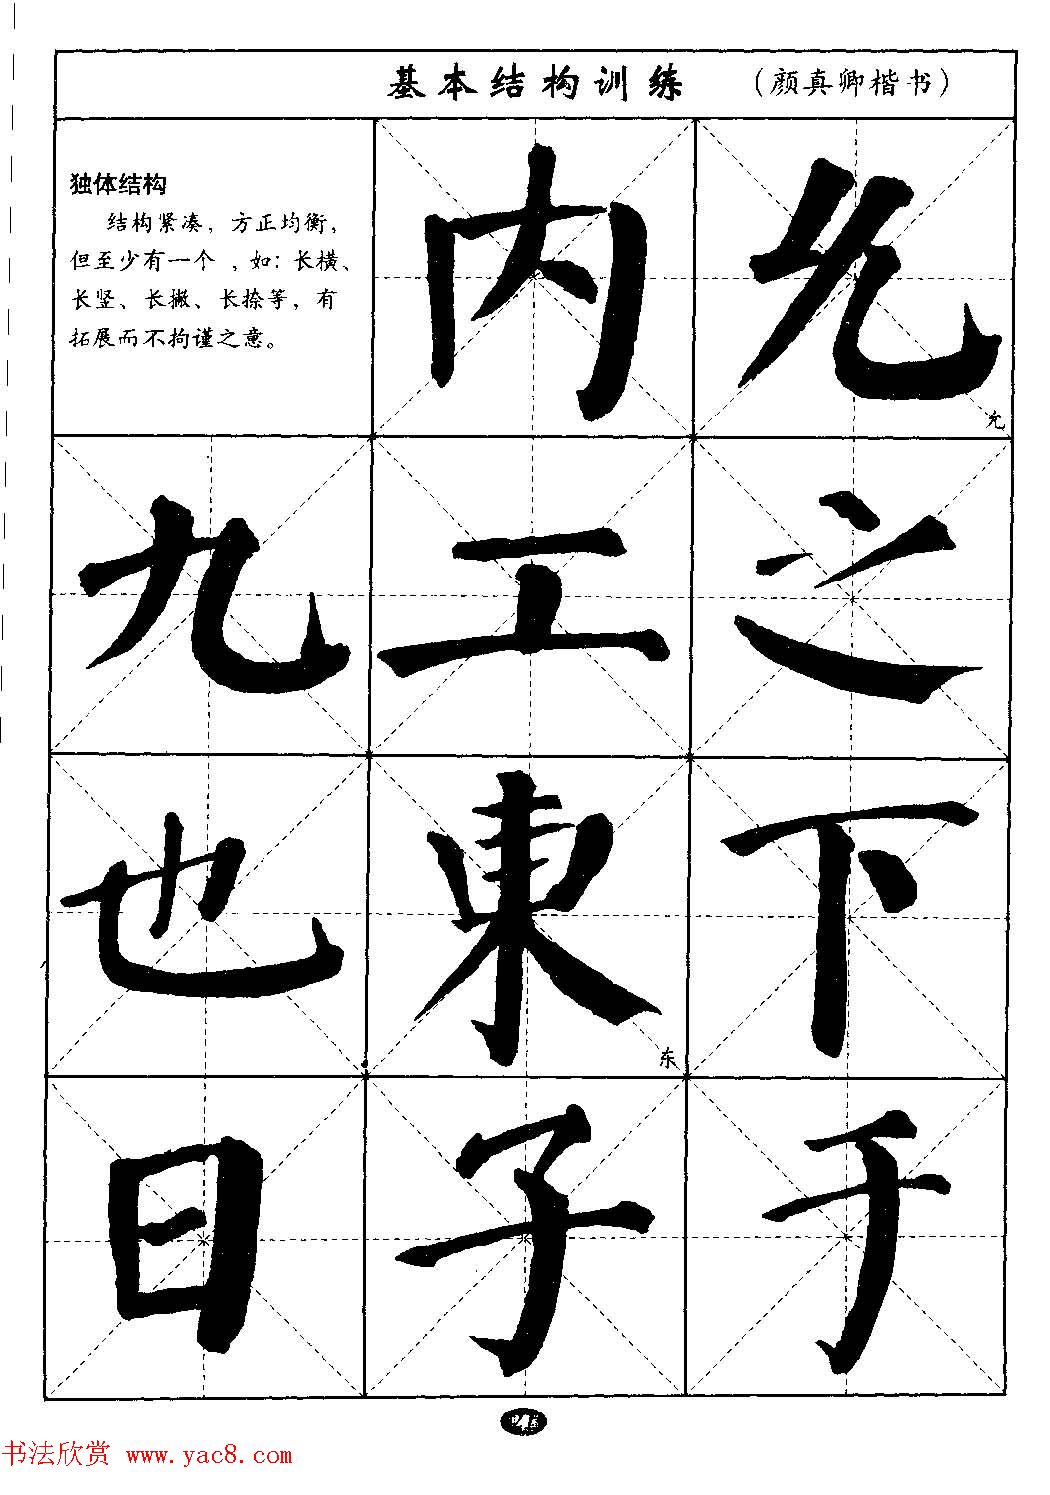 基本结构训练 (颜真卿楷书)
独体结构
结构紧凑，方正均衡，
但至少有一个，如：长横、
长竖、长撇、长捺等，有
拓展而不拘谨之意。
内 允
允
九 工 之
也 東 下
东
日 子 于
书法欣赏 www.yac8.com